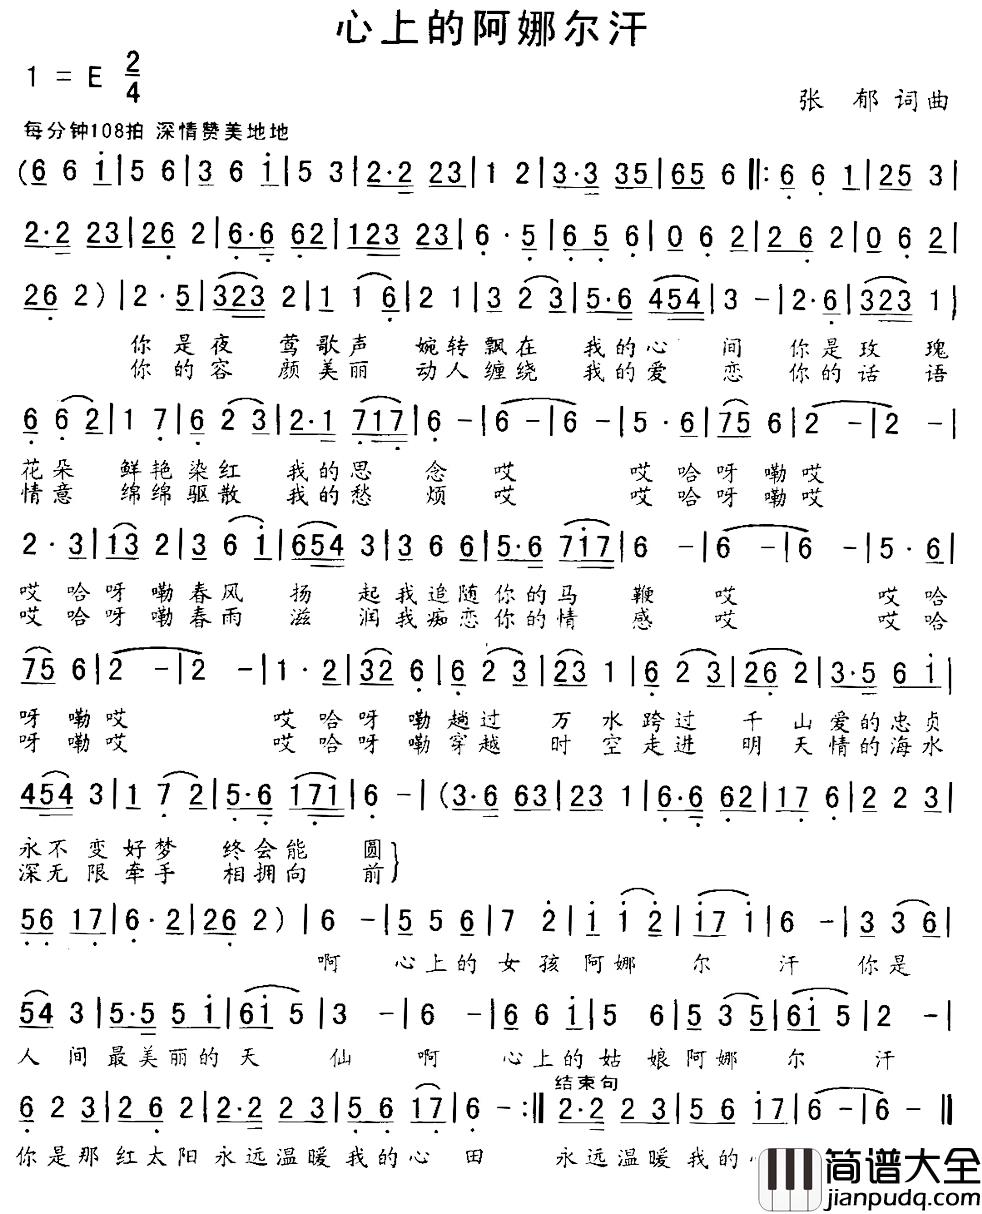 心上的阿娜尔汗
1 = E 2/4
张 郁 词曲
每分钟108拍 深情赞美地地
(6 6 i|5 6|3 6 i|5 3|2·2 23|1 2|3·3 35|65 6‖:6 6 1|25 3|
2·2 23|26 2|6·6 62|123 23|6·5|6 5 6|0 6 2|2 6 2|0 6 2|
26 2)|2·5|323 2|1 1 6|2 1|3 2 3|5·6 454|3 -|2·6|323 1|
你是夜 莺歌声 婉转飘在 我的心 间 你是玫 瑰
你的容 颜美丽 动人缠绕 我的爱 恋 你的话 语
6 6 2|1 7|6 2 3|2·1 717|6 -|6 -|6 -|5·6|75 6|2 -|2 -|
花朵 鲜艳染红 我的思 念 哎 哎哈呀嘞哎
情意 绵绵驱散 我的愁 烦 哎 哎哈呀嘞哎
2·3|i3 2|3 6 i|654 3|3 6 6|5·6 7i7|6 -|6 -|6 -|5·6|
哎哈呀嘞春风 扬 起我追随你的马 鞭 哎 哎哈
哎哈呀嘞春雨 滋 润我痴恋你的情 感 哎 哎哈
75 6|2 -|2 -|1·2|32 6|6 2 3|23 1|6 2 3|26 2|3·5 6 i|
呀嘞哎 哎哈呀嘞趟过 万水跨过 千山爱的忠贞
呀嘞哎 哎哈呀嘞穿越 时空走进 明天情的海水
454 3|1 7 2|5·6 171|6 -|(3·6 63|23 1|6·6 62|17 6|2 2 3|
永不变好梦 终会能 圆}
深无限牵手 相拥向 前}
56 17|6·2|26 2)|6 -|5 5 6|7 2|i i 2|i7 i|6 -|3 3 6|
啊 心上的女孩阿娜 尔 汗 你是
54 3|5·5 5 i|6i 5|3 -|6 -|5 5 i|5 6|5 3 5|6i 5|2 -|
人间最美丽的天 仙 啊 心上的姑娘阿娜 尔 汗
结束句
6 2 3|2 6 2|2·2 2 3|5 6 17|6 -:‖2·2 2 3|5 6 17|6 -|6 -‖
你是那红太阳永远温暖我的心 田 永远温暖我的
简谱大全
jianpudq.com